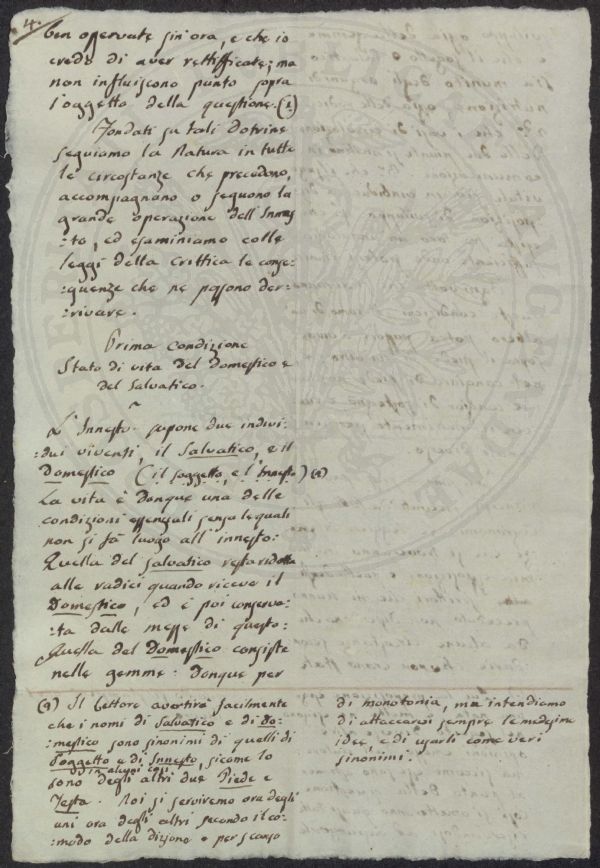 4.
ben osservate sin'ora, e che io
credo di aver rettifficate; ma
non influiscono punto sopra
l'oggetto della questione. (1)
Fondati su tali dotrine
seguiamo la Natura in tutte
le circostanze che precedono,
accompagnano o seguono la
grande operazione dell'Innes
:to, ed esaminiamo colle
leggi della Crittica le conse:
:guenze che ne possono der:
:rivare.
Prima Condizione
Stato di vita del Domestico e
del Salvatico.
L'Innesto supone due indivi:
:dui viventi, il Salvatico, e il
Domestico (il soggetto, e l'Innesto) (2)
La vita è dunque una delle
condizioni essenziali senza le quali
non si fà luogo all'innesto:
Quella del salvatico resta ridotta
alle radici quando riceve il
Domestico, ed è poi conserva:
:ta dalle messe di questo:
Quella del Domestico consiste
nelle gemme: dunque per
(2) Il Lettore avertirà facilmente
che i nomi di Salvatico e di Do:
:mestico sono sinonimi di quelli di
Soggetto e di Innesto, sicome lo
sono in alcuni casi degli altri due Piede e
Testa. Noi si serviremo ora degli
uni ora degli altri secondo il co:
:modo della dizione e per scanso
di monotonia, ma intendiamo
di attaccarvi sempre le medesime
idee, e di usarli come veri
sinonimi.